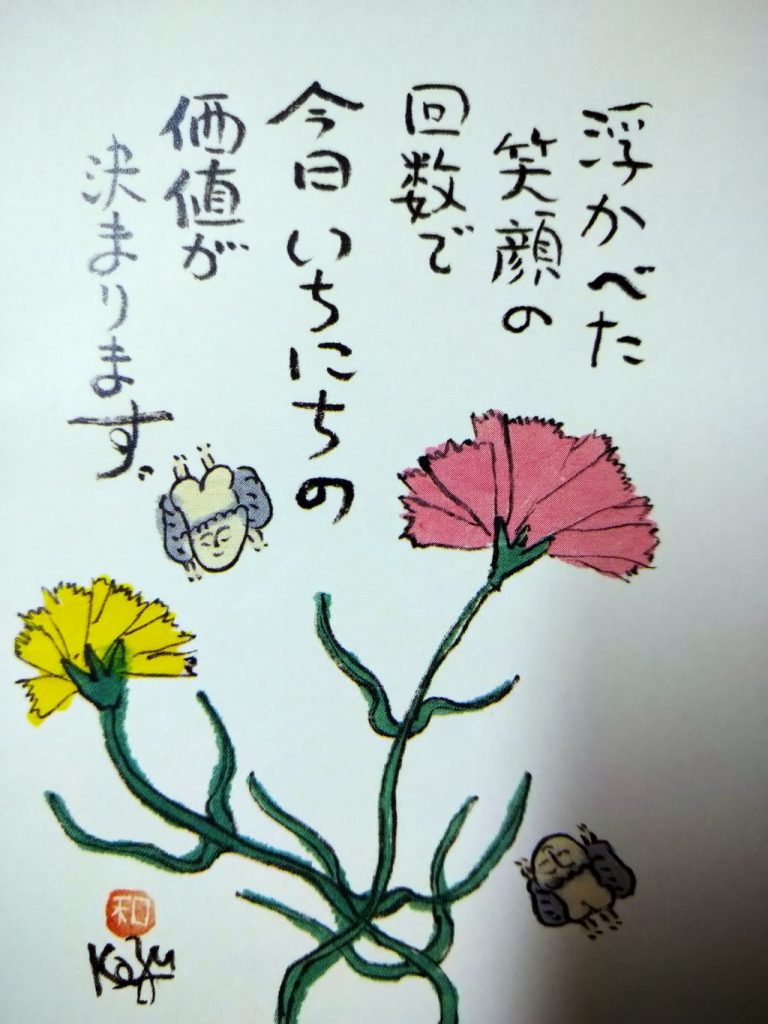 浮かべた
笑顔の
回数で
今日いちにちの
価値が
決まります。
和